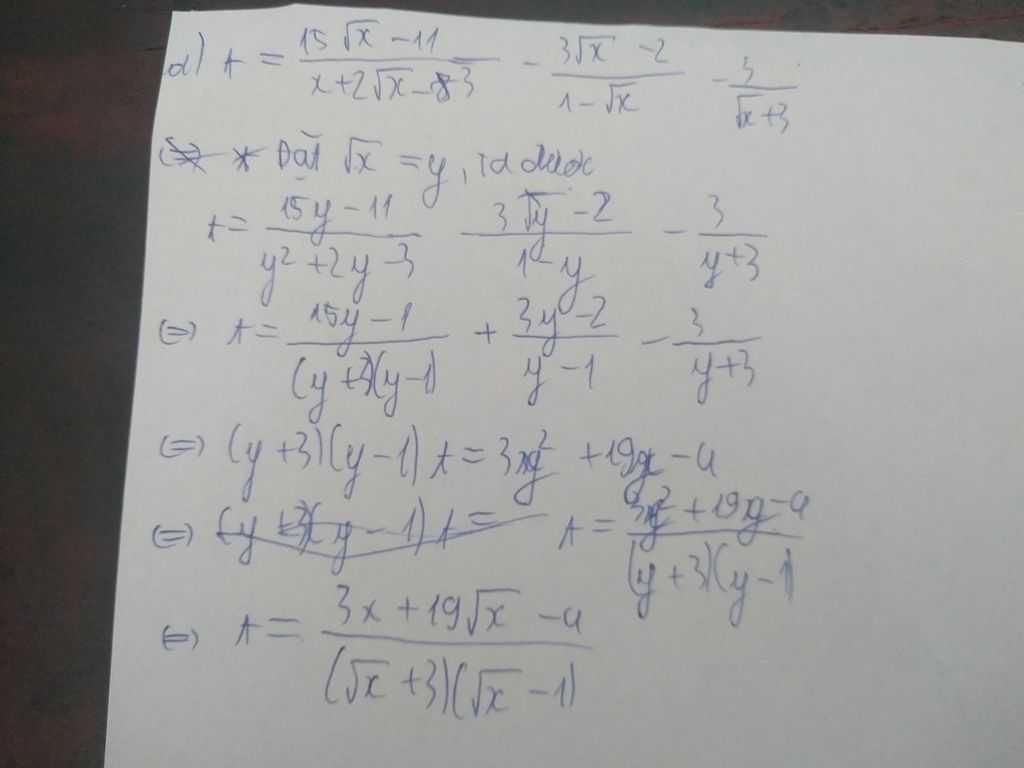 a) A = (15√x - 11)/(x + 2√x - 3) - (3√x - 2)/(1 - √x) - 3/(√x + 3)
* Đặt √x = y, ta được
A = (15y - 11)/(y² + 2y - 3) (3√y - 2)/(1 - y) - 3/(y + 3)
(=) A = (15y - 1)/((y + 3)(y - 1)) + (3y - 2)/(y - 1) - 3/(y + 3)
(=) (y + 3)(y - 1) A = 3y² + 19y - 4
(=) (y + 3)(y - 1) A = A = (3y² + 19y - 4)/((y + 3)(y - 1))
(=) A = (3x + 19√x - 4)/((√x + 3)(√x - 1))